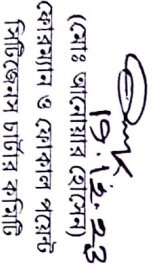 19.12.23
(মোঃ আনোয়ার হোসেন)
ফোরম্যান ও ফোকাল পয়েন্ট
সিটিজেনস চার্টার কমিটি